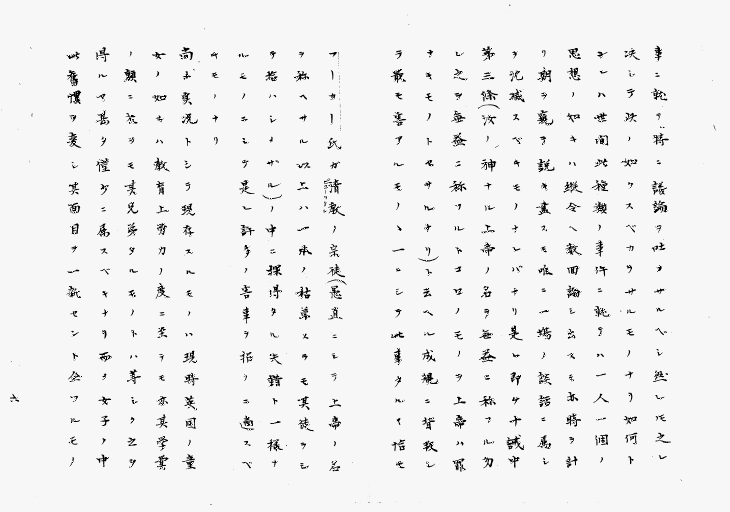 事ニ就テ時ニ議論ヲ吐カサルベシ然レ𪜈之レ
決シテ次ノ如クスベカラサルモノナリ如何ト
ナレハ世間此種類ノ事件ニ就テハ一人一個ノ
思想ノ如キハ縦令ヘ数回論シ出スモ亦時ヲ計
リ期ヲ窺ヲ説キ盡スモ唯ニ一場ノ談話ニ属シ
ヲ汎滅スベキモノナレバナリ是レ即チ十誡中
第三條(汝ノ神ナル上帝ノ名ヲ毎益ニ称フル勿
レ之ヲ毎益ニ称フルトコロノモノヲ上帝ハ罪
ナキモノトセサルナリ)ト云ヘル成規ニ背敎シ
ヲ最モ害アルモノヽ一ニシテ此事タルヤ恰モ
フーカー氏カ清敎ノ宗徒(愚直ニシテ上帝ノ名
ヲ称ヘサル以上ハ一本ノ枯草スラモ其徒ヲシ
テ拾ハシメザル)ノ中ニ探得タル失錯ト一様ナ
ルモノニシテ是レ許多ノ害事ヲ招クニ適スベ
キモノナリ
尚ホ実況トシテ現存スルモノハ現時英国ノ童
女ノ如キハ敎育上努力ノ度ニ至テモ亦其学業
ノ類ニ於テモ其兄弟タルモノトハ等シク之ヲ
得ルヤ甚タ僅少ニ属スベキナリ而テ女子ノ中
此舊慣ヲ変シ其面目ヲ一新セント企ツルモノ
六